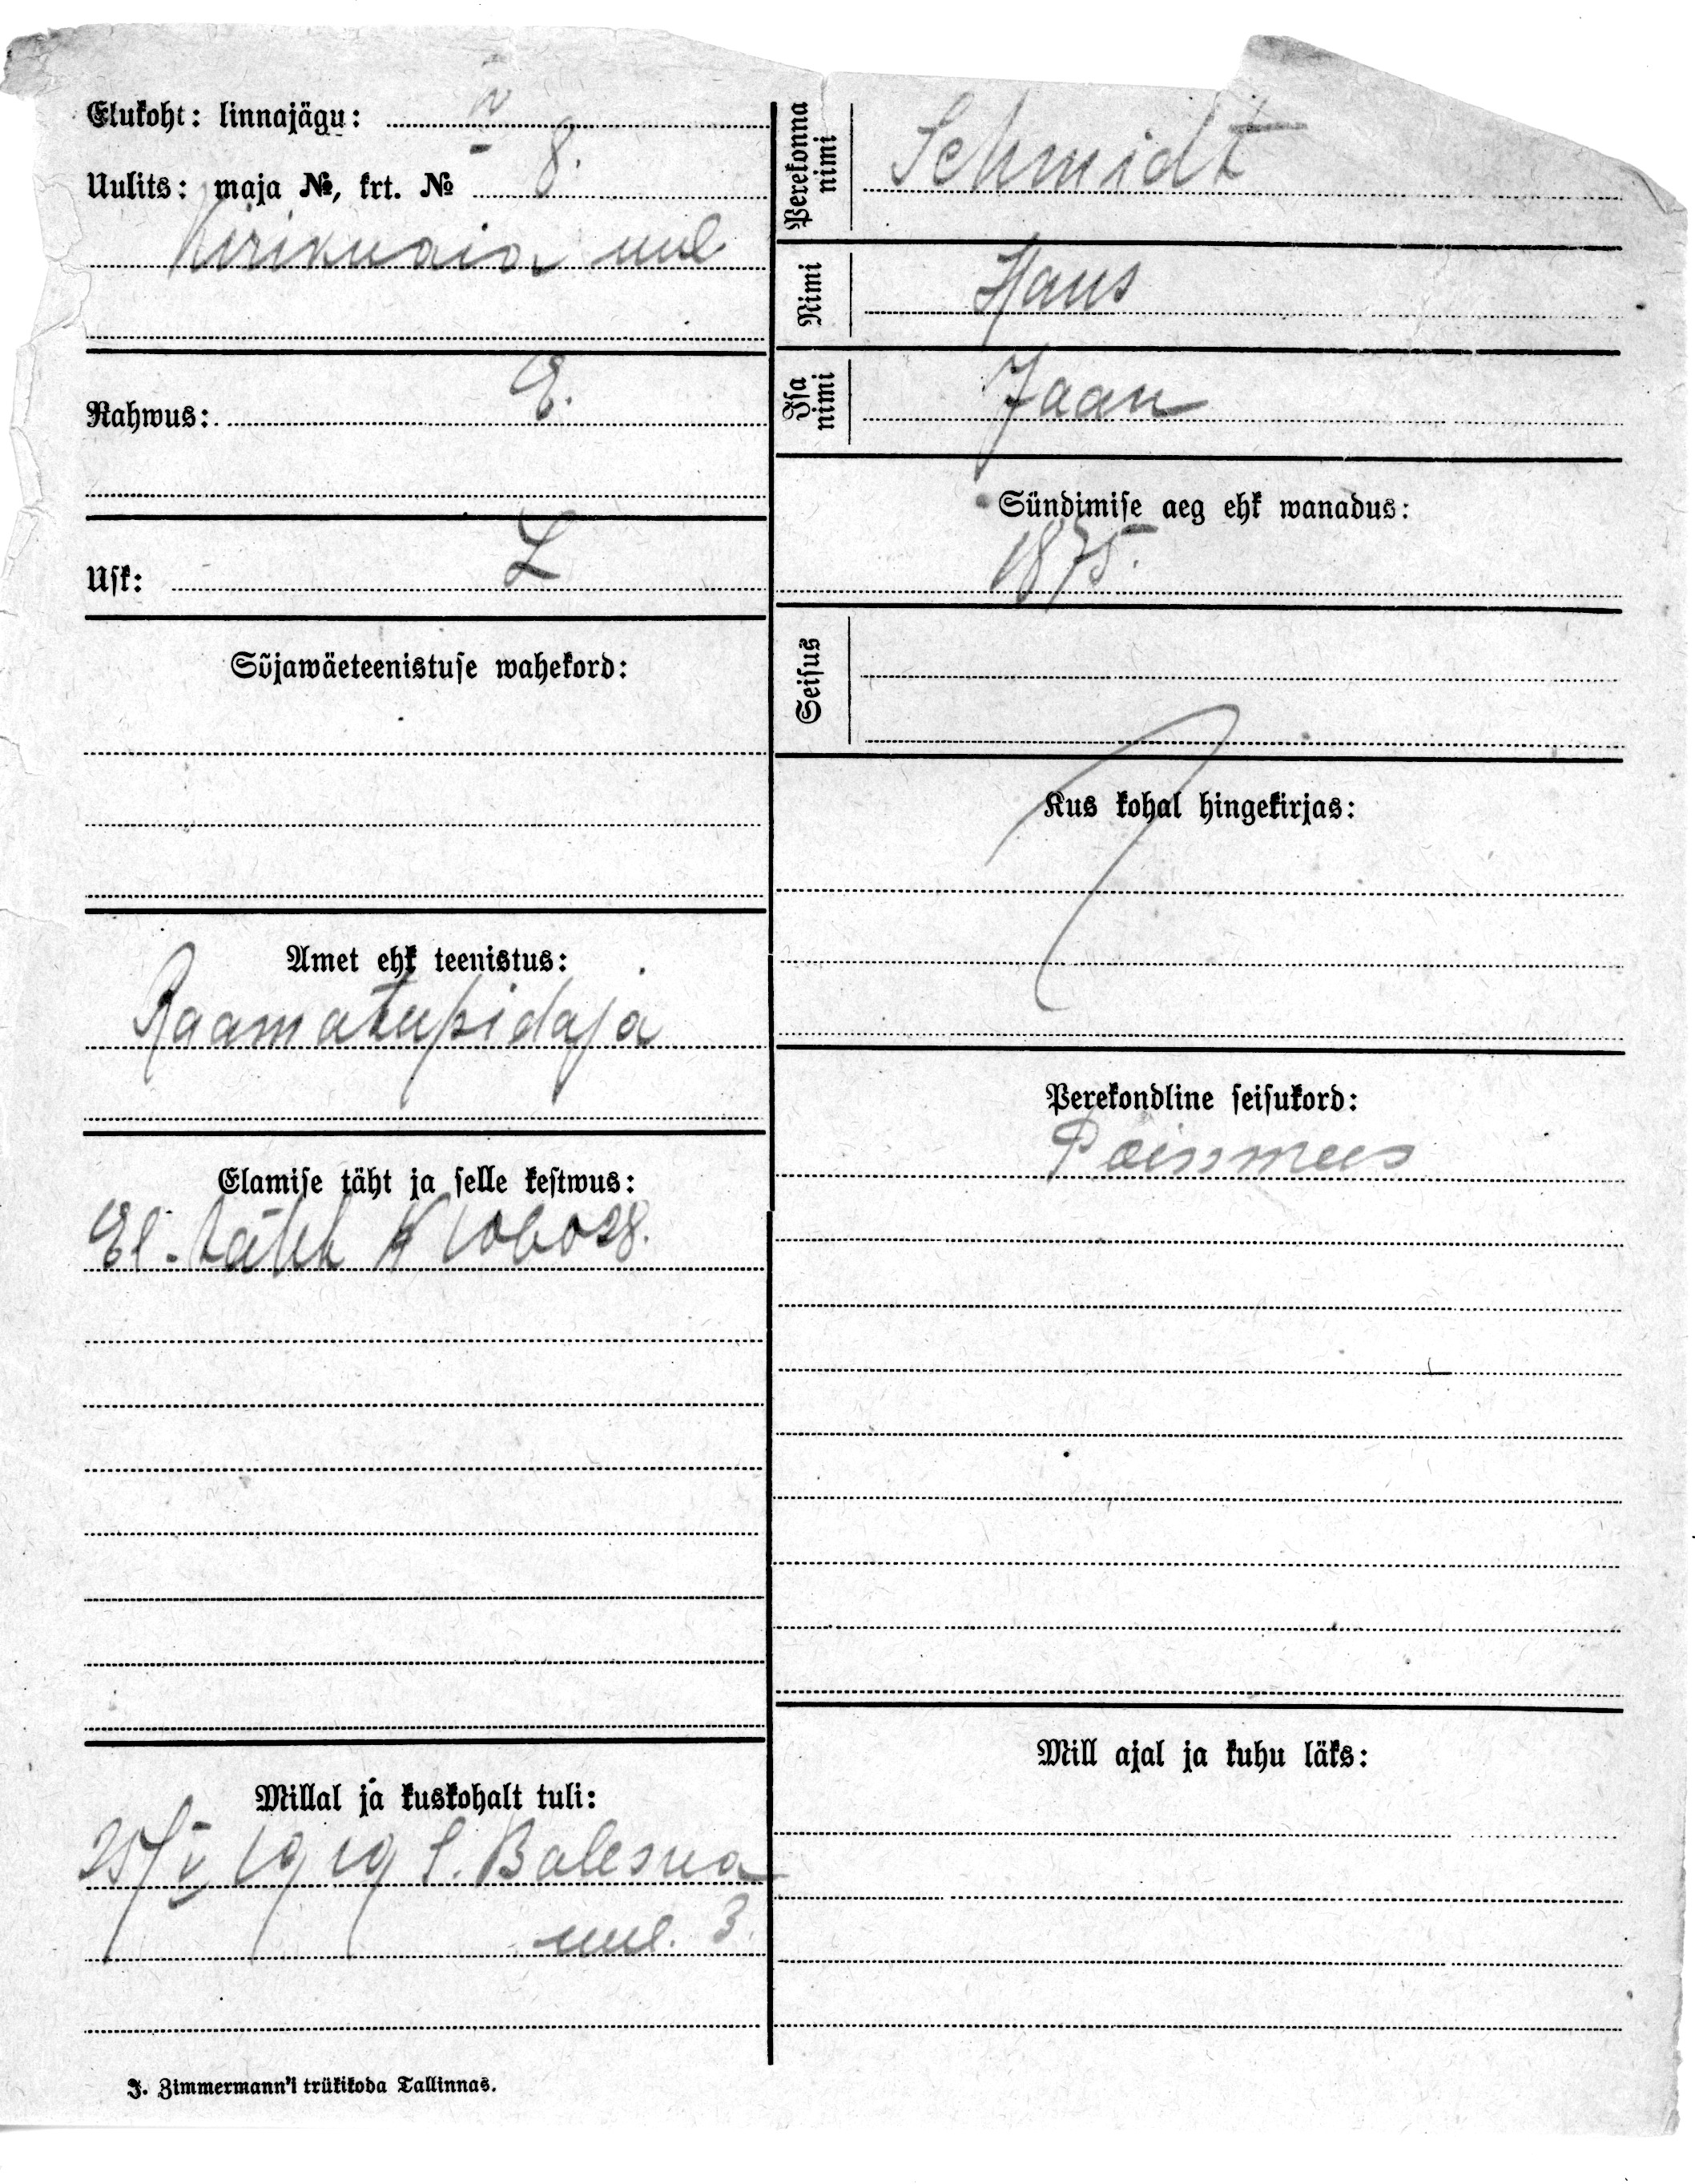 Elukoht: linnajägu: IV
Uulits: maja №, krt. № 8.
Kirikuaia uul
Rahwus: E.
Usk: L
Sõjawäeteenistuse wahekord:
Amet ehk teenistus:
Raamatupidaja
Elamise täht ja selle kestwus:
El. täht № 106028.
Millal ja kuskohalt tuli:
25/V 1919 S. Balesna
uul. 3.
J. Zimmermann'i trükikoda Tallinnas.
Perekonna nimi
Schmidt
Nimi
Hans
Isa nimi
Jaan
Sündimise aeg ehk wanadus:
1875.
Seisus
Kus kohal hingekirjas:
Perekondline seisukord:
Poissmees
Mill ajal ja kuhu läks: